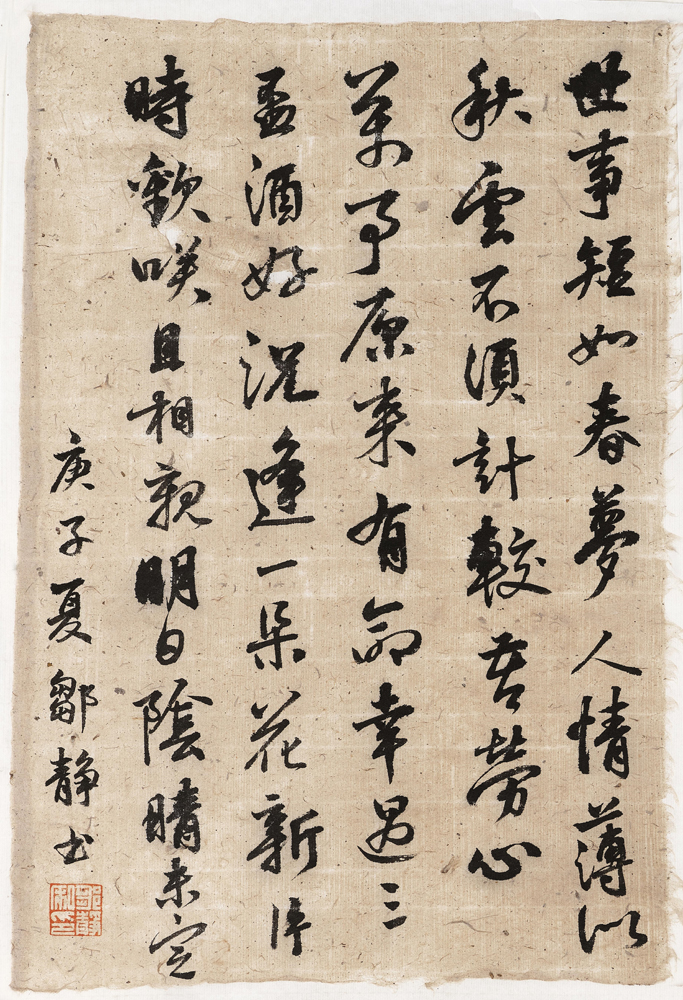 世事短如春夢人情薄似
秋雲不須計較苦勞心
萬事原來有命幸遇三
盃酒好況逢一朵花新片
時歡咲且相親明日陰晴未定
庚子夏鄒静书
鄒靜私印